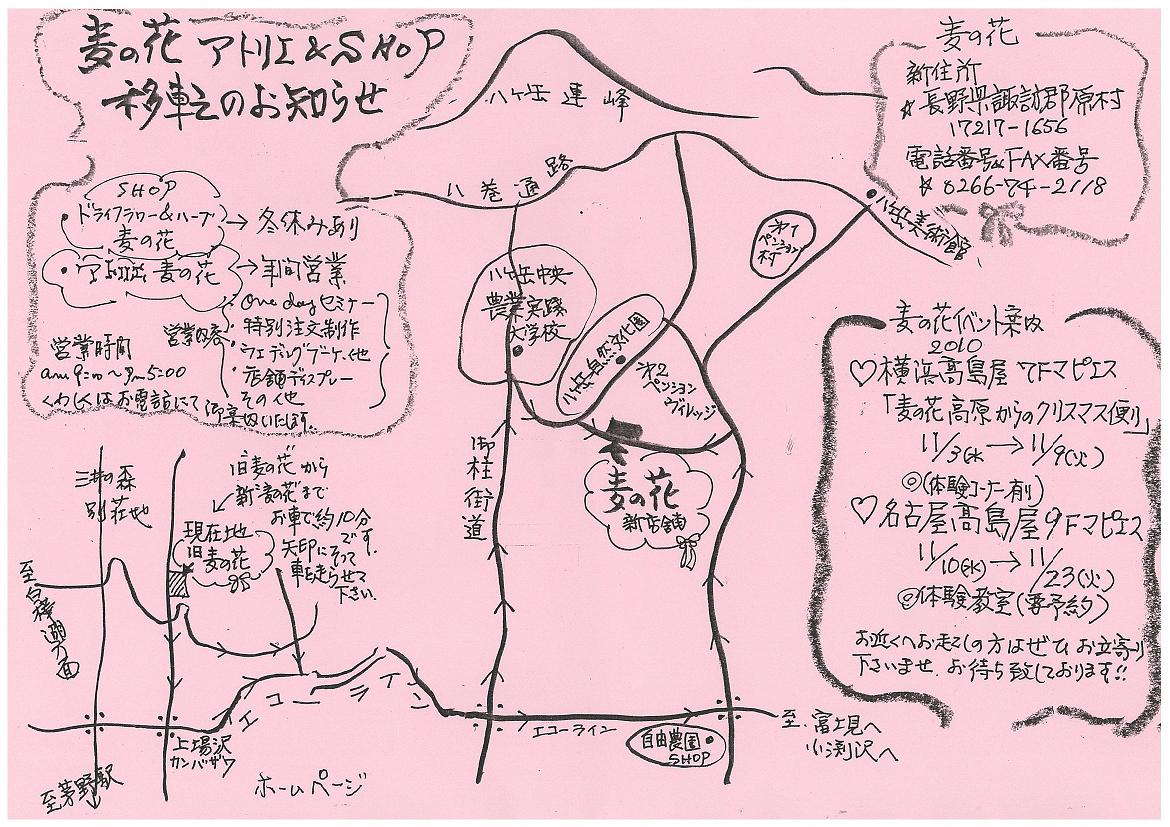 麦の花 アトリエ&SHOP
移転のお知らせ
SHOP
ドライフラワー&ハーブ
麦の花
→冬休みあり
アトリエ 麦の花
→年間営業
営業内容
・One dayセミナー
・特別注文制作
・ウェディングブーケ、他
・店舗ディスプレー
その他
営業時間
am9:00〜Pm5:00
くわしくはお電話にて
御案内いたします。
八ヶ岳連峰
八巻通路
麦の花
新住所
☆長野県諏訪郡原村
17217-1656
電話番号&FAX番号
☆0266-74-2118
八ヶ岳美術館
第1
ペンション
村
八ヶ岳中央
農業実践
大学校
八ヶ岳自然文化園
第2
ペンション
ヴィレッジ
御柱街道
麦の花
新店舗
麦の花イベント案内
2010
♡横浜髙島屋 7Fマピエス
「麦の花高原からのクリスマス便り」
11/3(水)→11/9(火)
◎(体験コーナー有り)
♡名古屋髙島屋9Fマピエス
11/10(水)→11/23(火)
◎体験教室(要予約)
お近くへお越しの方はぜひお立寄り
下さいませ、お待ち致しております!!
三井の森
別荘地
旧麦の花から
新麦の花まで
お車で約10分
です。
矢印にそって
車を走らせて
下さい。
現在地
旧麦の花
至白樺湖方面
エコーライン
エコーライン
上場沢
カンバザワ
至茅野駅
ホームページ
自由農園
SHOP
至.富士見へ
小渕沢へ